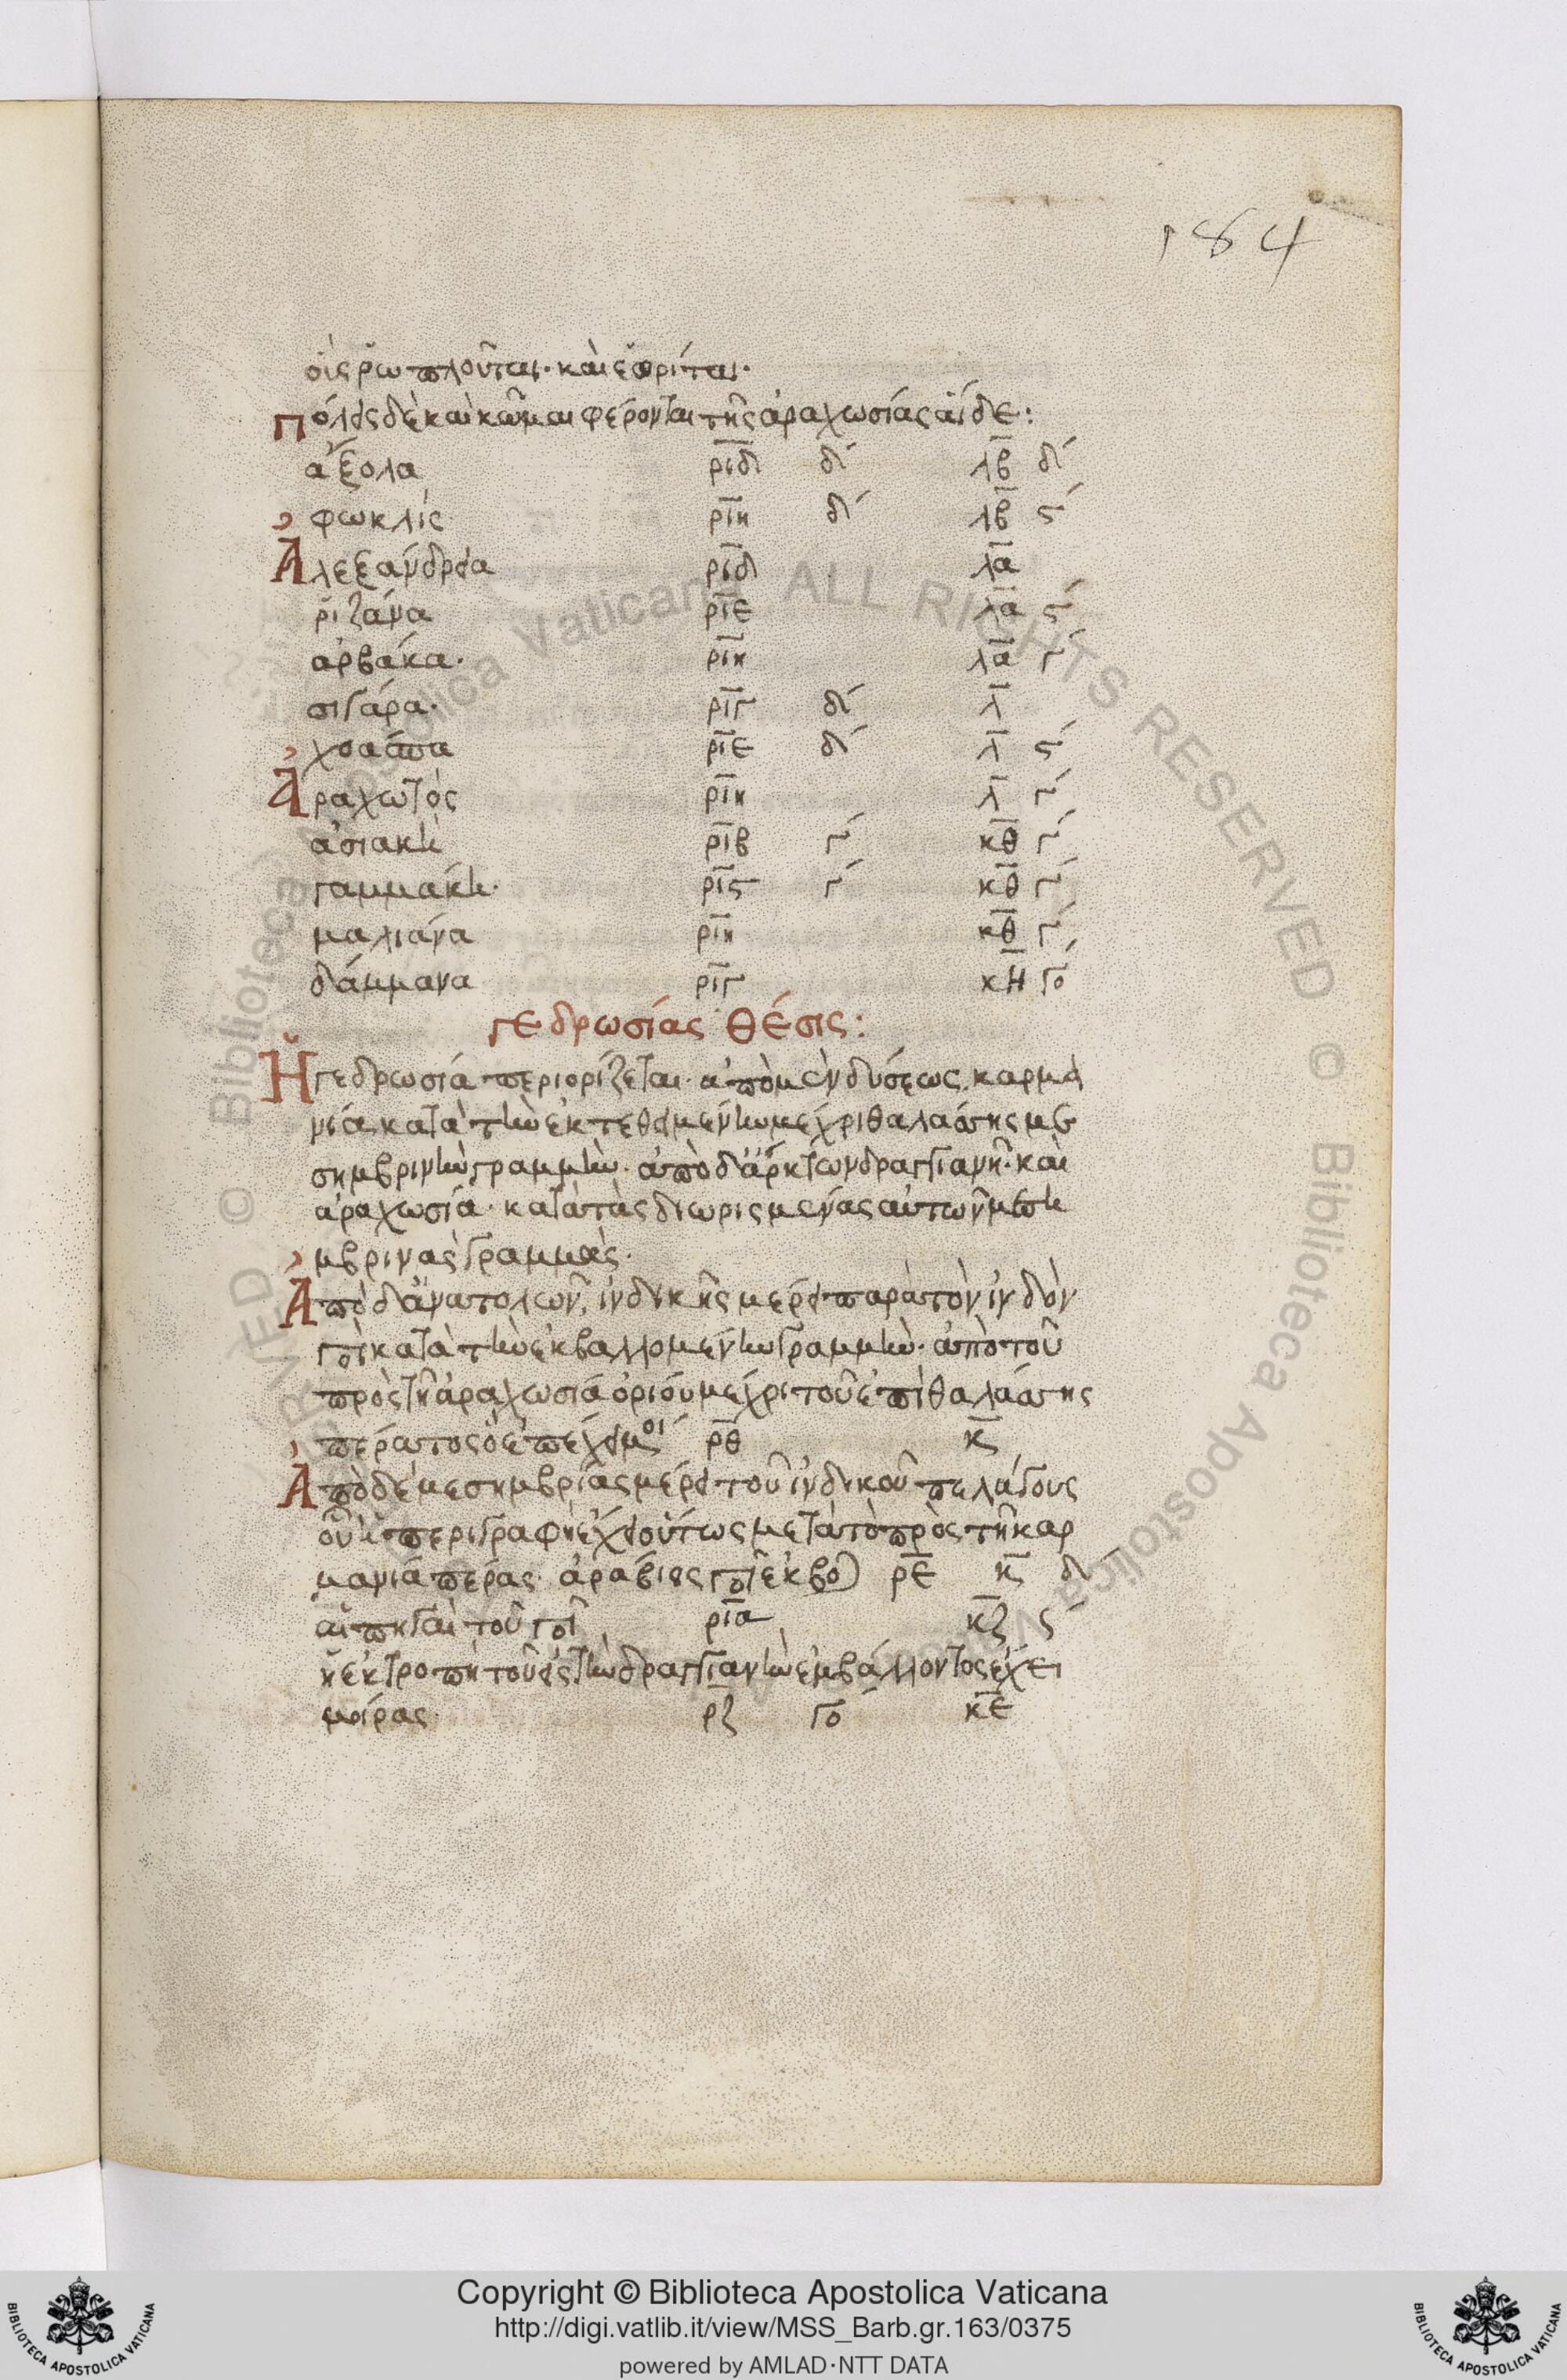 184
οἷς ῥωπλοῦται· καὶ ἐωρίται·
Πόλεις δὲ καὶ κῶμαι φέρονται τῆς ἀραχωσίας αἵδε:
ἄζολα ριδ δ´ λβ δ´
φωκλίς ριη δ´ λβ ϛ´
Ἀλεξάνδρεια ριδ λα
ῥιζάνα ριε λα ϛ´
αρβάκα· ριη λα γ´
σιγάρα· ριγ δ´ λ
χοάπα ριε δ´ λ ϛ´
Ἀραχωτός ριη λ γ´
ἀσιακή ριβ γ´ κθ γ´
γαμμάκη· ριϛ γ´ κθ γ´
μαλιάνα ριη κθ γ´
δάμμανα ριγ κη γο
γεδρωσίας θέσις:
Ἡ γεδρωσία περιορίζεται· ἀπὸ μὲν δύσεως, καρμα
νία κατὰ τὴν ἐκτεθειμένην μέχρι θαλάσσης με
σημβρινὴν γραμμήν· ἀπὸ δ' ἄρκτων δραγγιανῇ· καὶ
ἀραχωσία· κατὰ τὰς διωρισμένας αὐτῶν μεση
μβρινὰς γραμμάς·
Ἀπὸ δ' ἀνατολῶν, ἰνδικῆς μέρει παρὰ τὸν ἰνδὸν
ποτ κατὰ τὴν ἐκβαλλομένην γραμμήν· ἀπὸ τοῦ
πρὸς τῇ ἀραχωσίᾳ ὁρίου μέχρι τοῦ ἐπὶ θαλάσσης
πέρατος ὃ ἐπέχει μοί ρθ κ
Ἀπὸ δὲ μεσημβρίας μέρει τοῦ ἰνδικοῦ πελάγους
οὗ ἡ περιγραφὴ ἔχει οὕτως μετὰ τὸ πρὸς τῇ καρ
μανίᾳ πέρας ἀράβιος ποτ ἐκβο ρε κ δ´
αἱ πηγαὶ τοῦ ποτ ρια κζ ϛ´
ἡ ἐκτροπὴ τοῦ εἰς τὴν δραγγιανὴν ἐμβάλλοντος ἔχει
μοίρας· ρζ γο κε
Copyright © Biblioteca Apostolica Vaticana
http://digi.vatlib.it/view/MSS_Barb.gr.163/0375
powered by AMLAD·NTT DATA